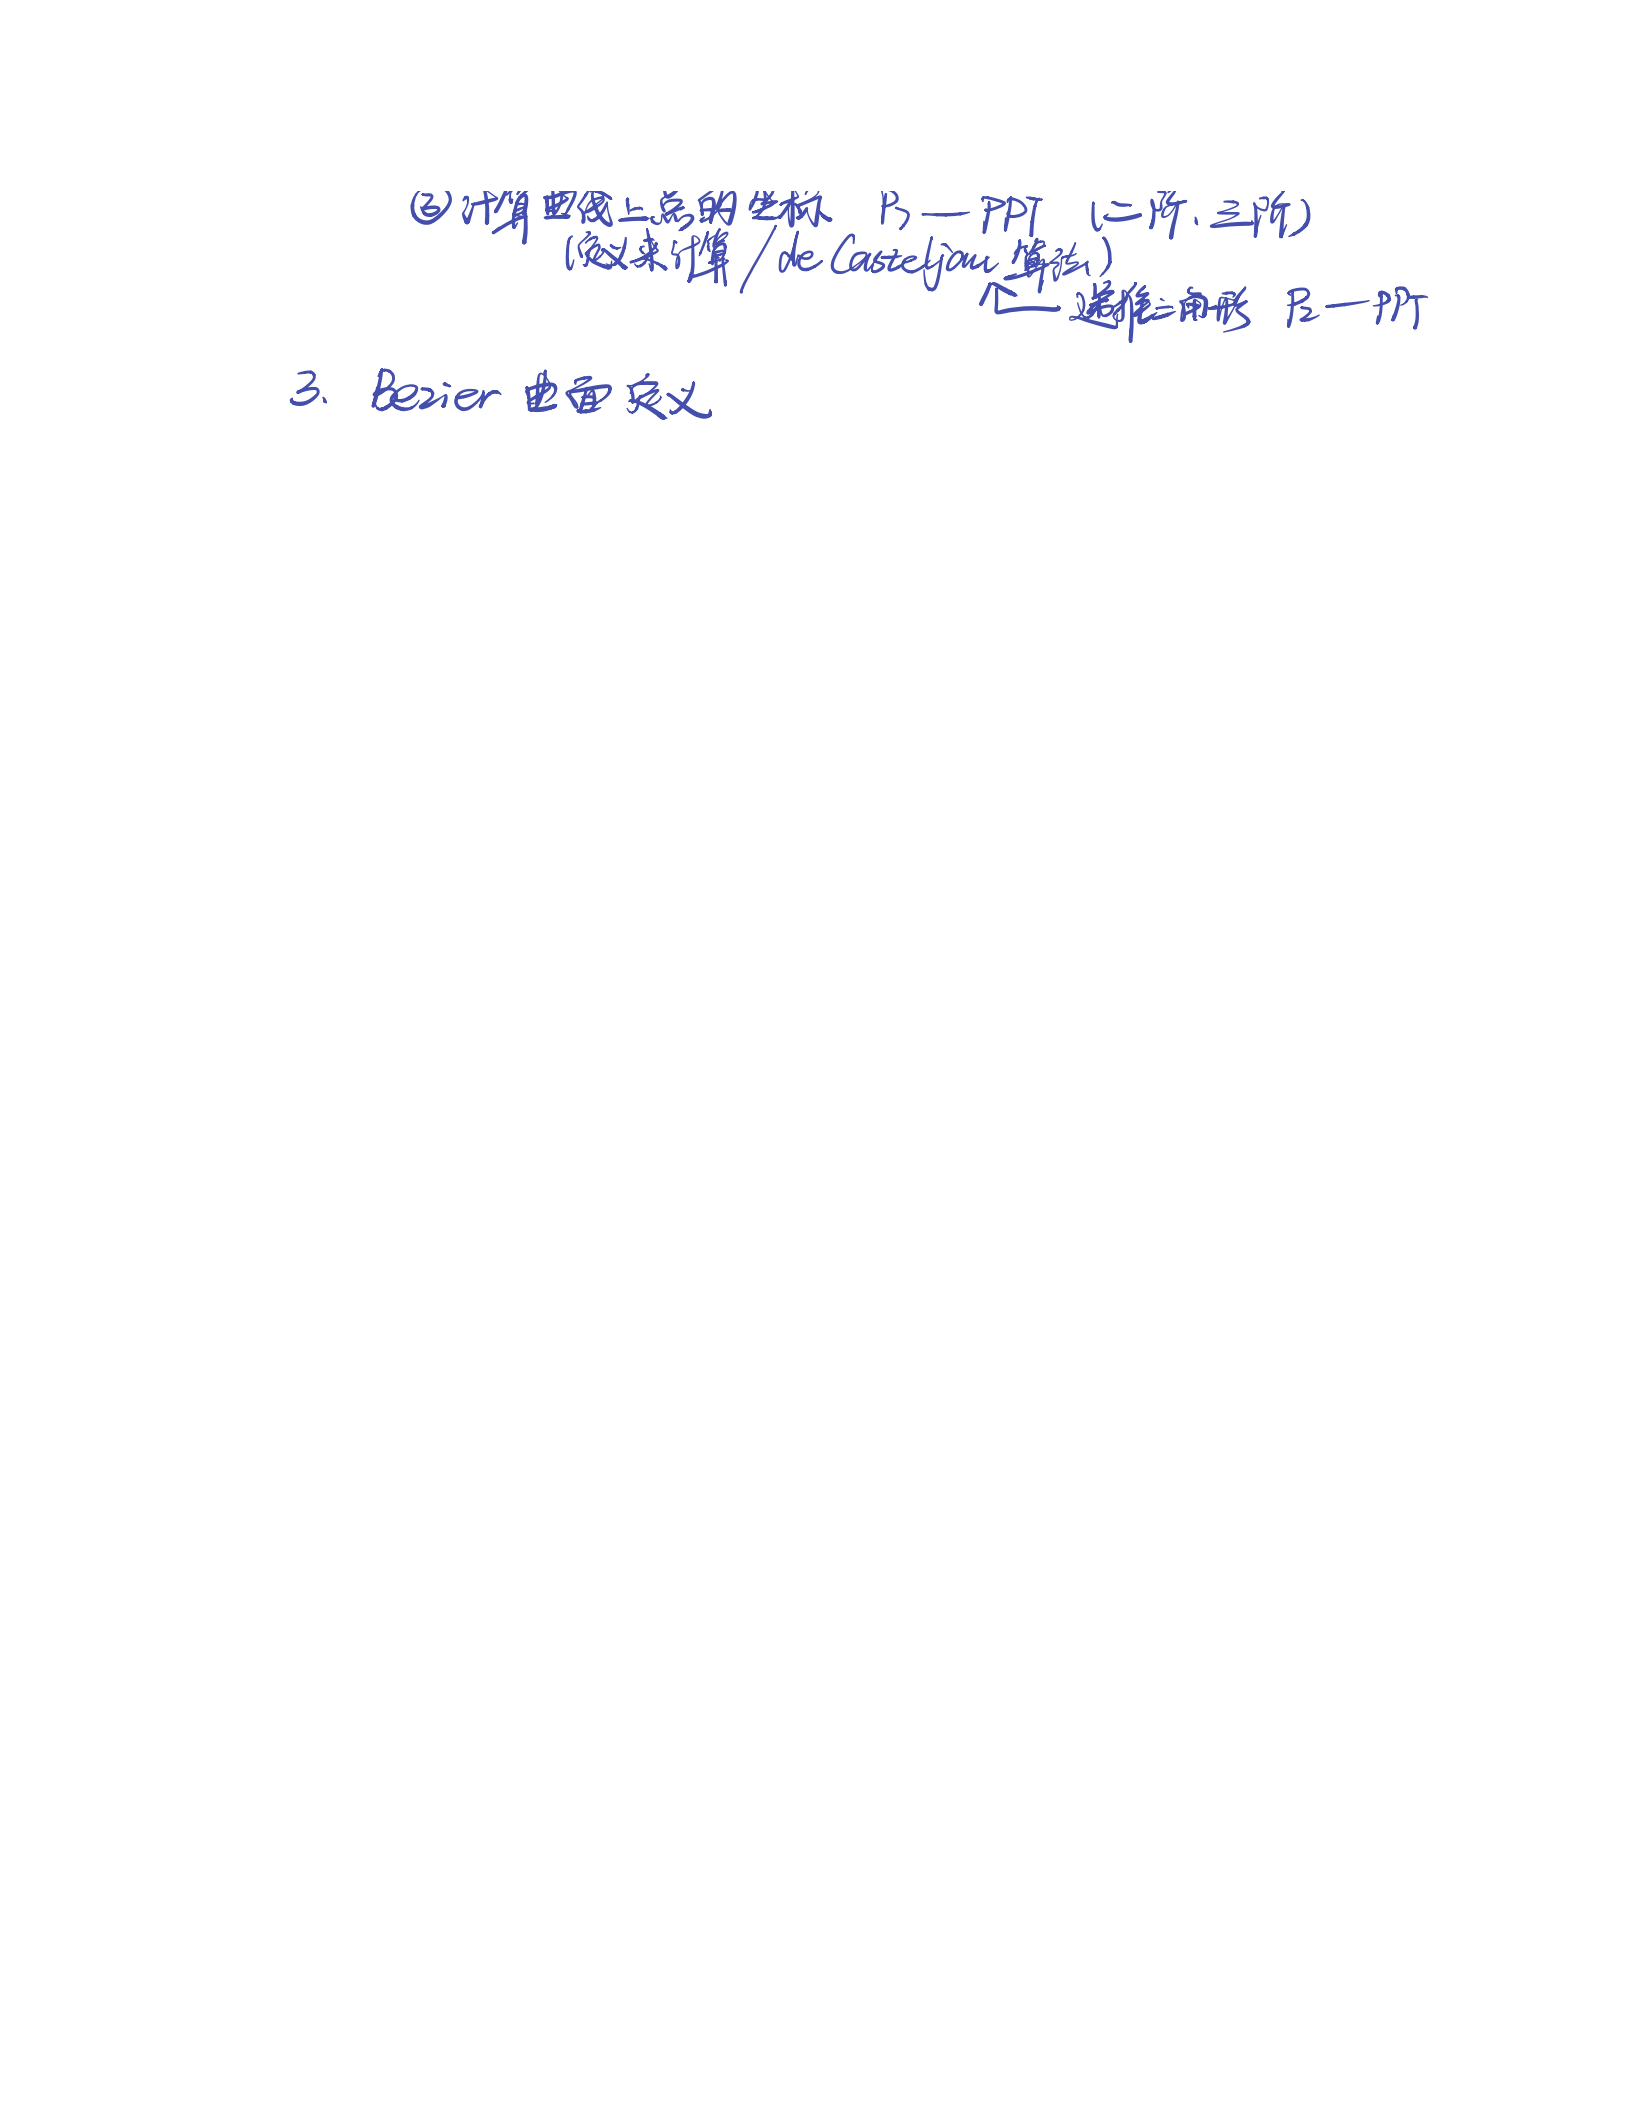 ③计算曲线上点的坐标 P3—PPT (二阶、三阶)
(定义来计算/de Casteljau 算法)
递推三角形 P2—PPT
3、Bezier 曲面定义